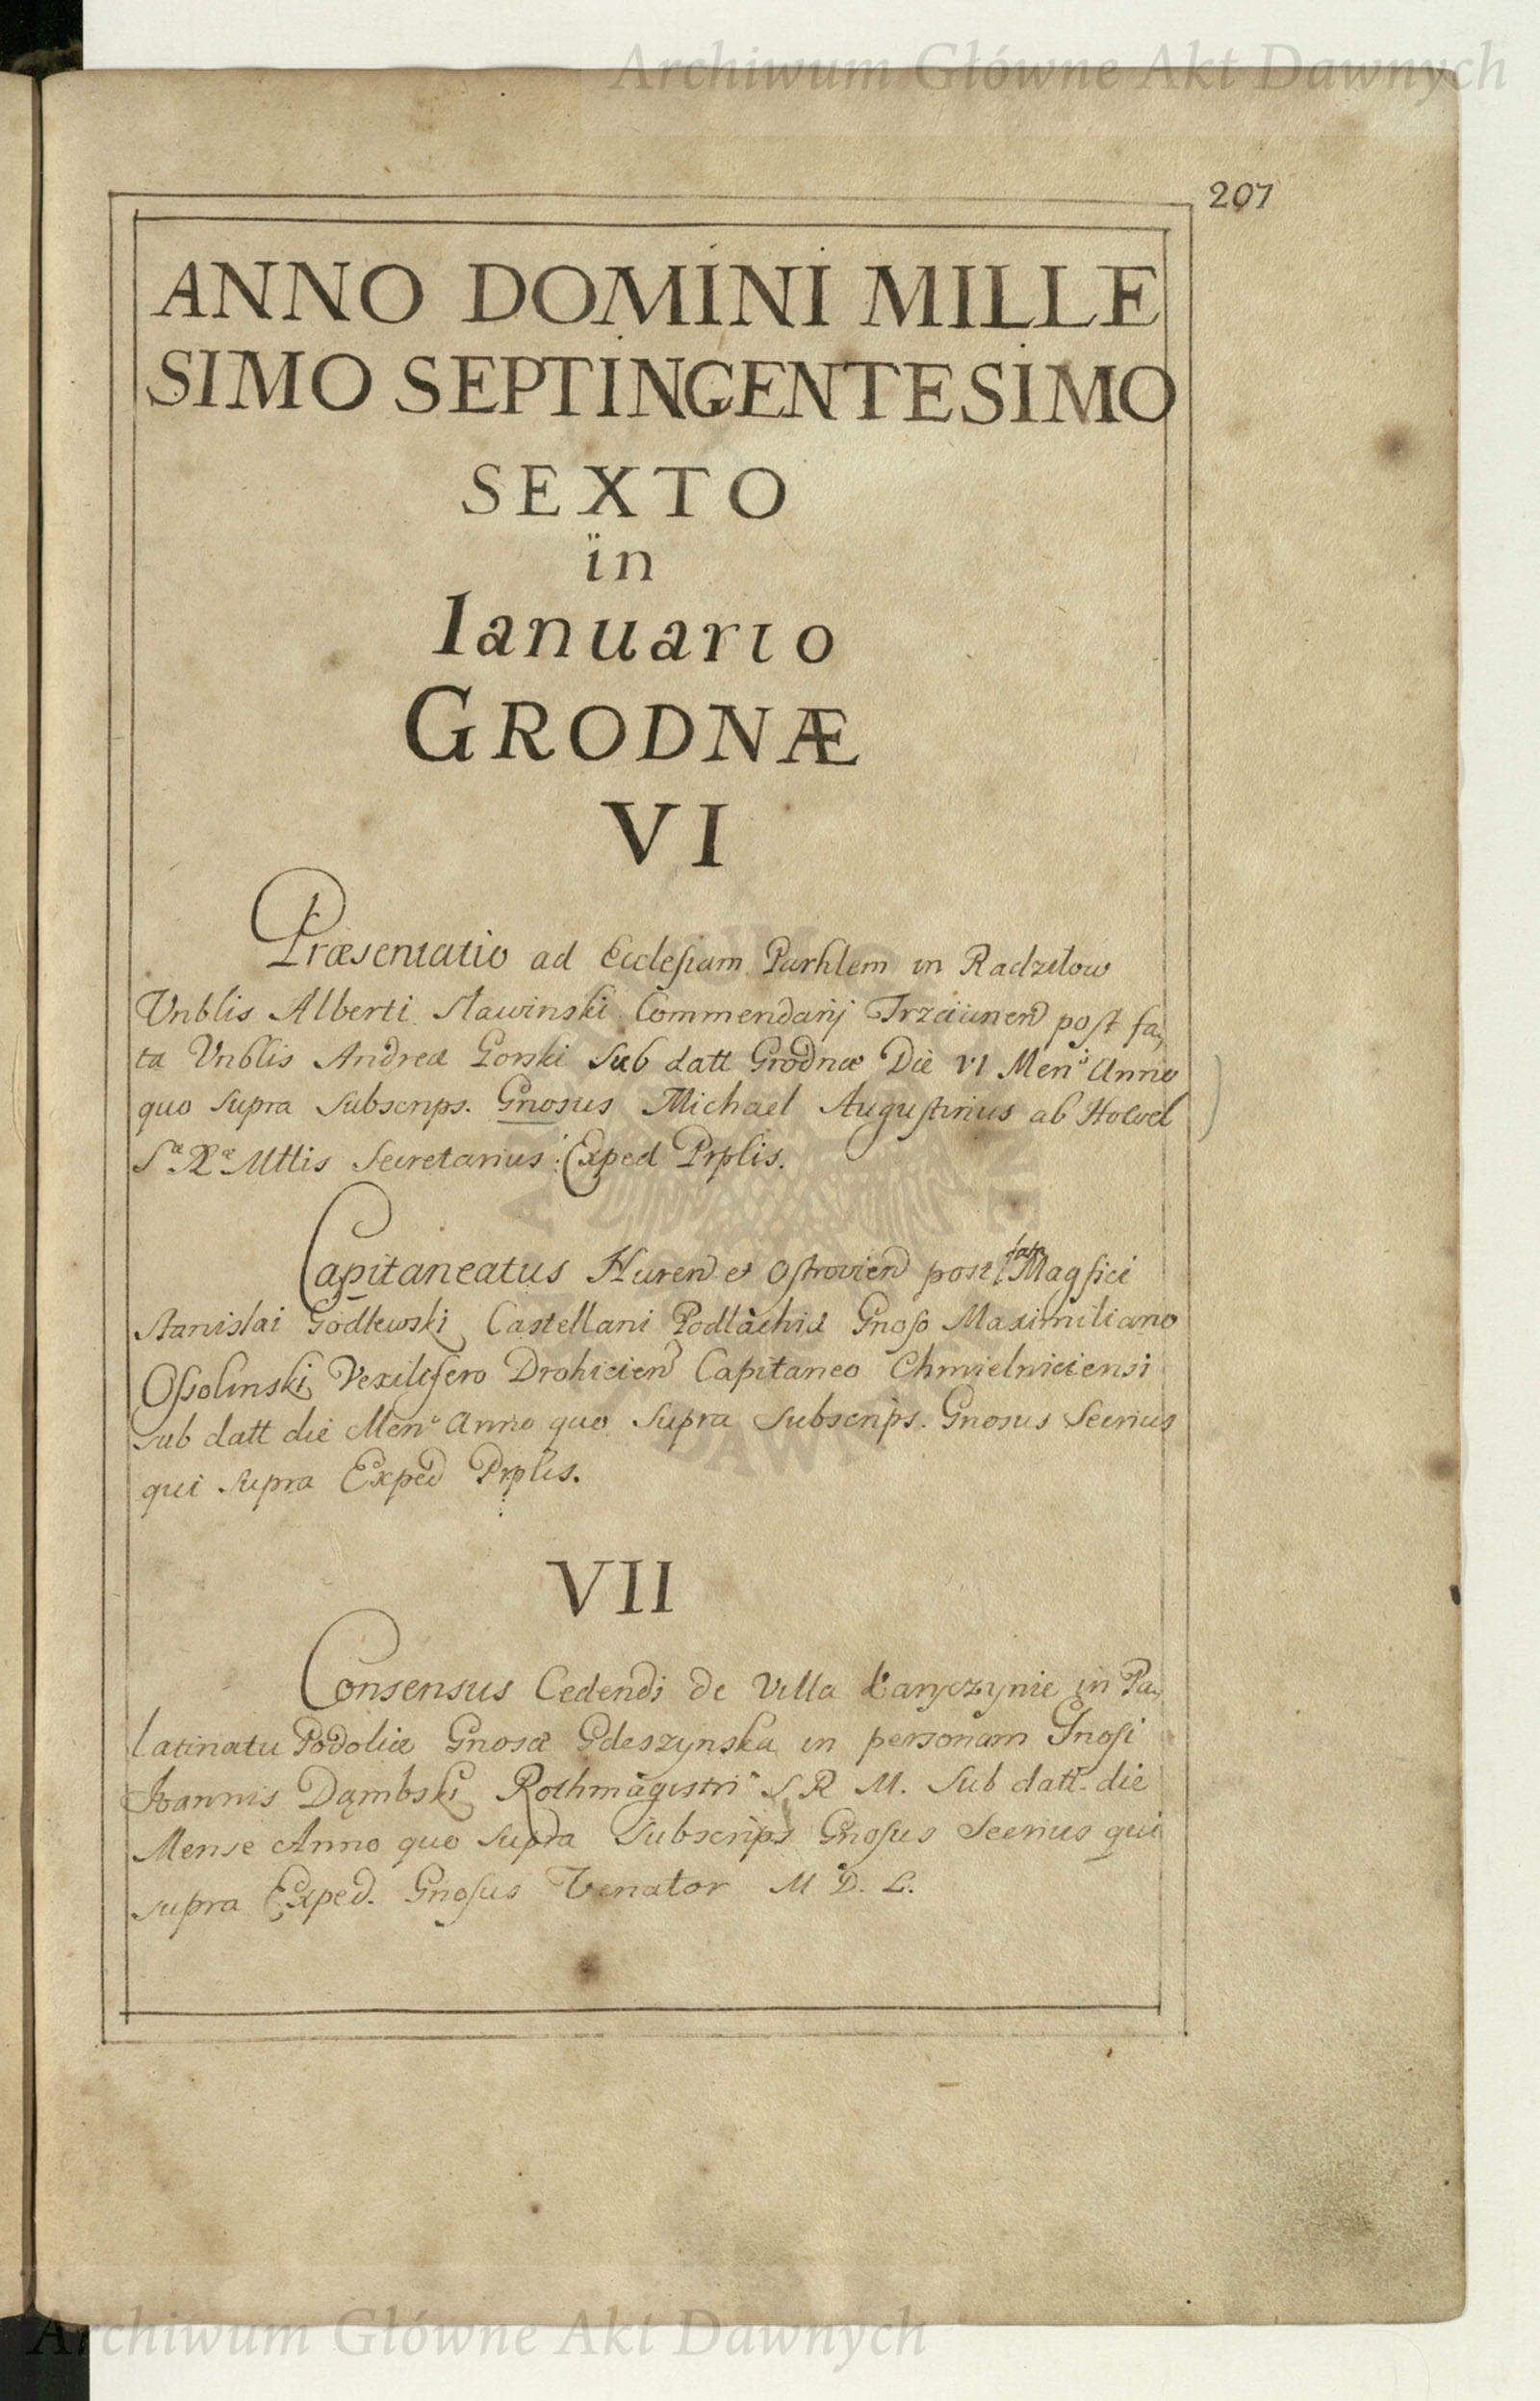 Archiwum Główne Akt Dawnych
207
ANNO DOMINI MILLE
SIMO SEPTINGENTESIMO
SEXTO
in
Ianuario
GRODNÆ
VI
Præsentatio ad Ecclesiam Parhlem in Radziłow
Vnblis Alberti Sławinski Commendarij post fa,
ta Vnblis Andreæ Gorski sub datt Grodnæ Die VI Men. Anno
quo supra Subscrips. Gnosus Michael Augustinus ab Holvel
Sæ Ræ Mttis Secretarius: Exped Prplis.
Capitaneatus Nuren et Ostrovien post fata Magfici
Stanislai Godlewski Castellani Podlachiæ Gnoso Maximiliano
Ossolinski Vexilifero Drohicien Capitaneo Chmielniciensi
sub datt die Men. Anno quo supra Subscrips. Gnosus Secrius
qui supra Exped Prplis.
VII
Consensus Cedendi de Villa in Pa,
latinatu Podoliæ Gnosæ Gdeszynska in personam Gnosi
Ioannis Dąmbski Rothmagistri S. R M. Sub datt. die
Mense Anno quo supra Subscrips Gnosus Secrius qui
supra Exped. Gnosus Venator M D. L.
Archiwum Główne Akt Dawnych